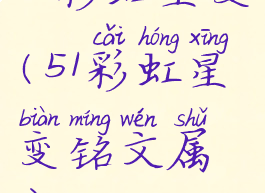 cǎi hóng xīng
(51彩虹星
biàn míng wén shǔ
变铭文属